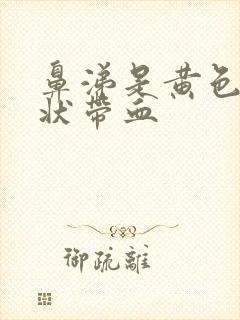 鼻涕呈黄色
状带血
御疏離